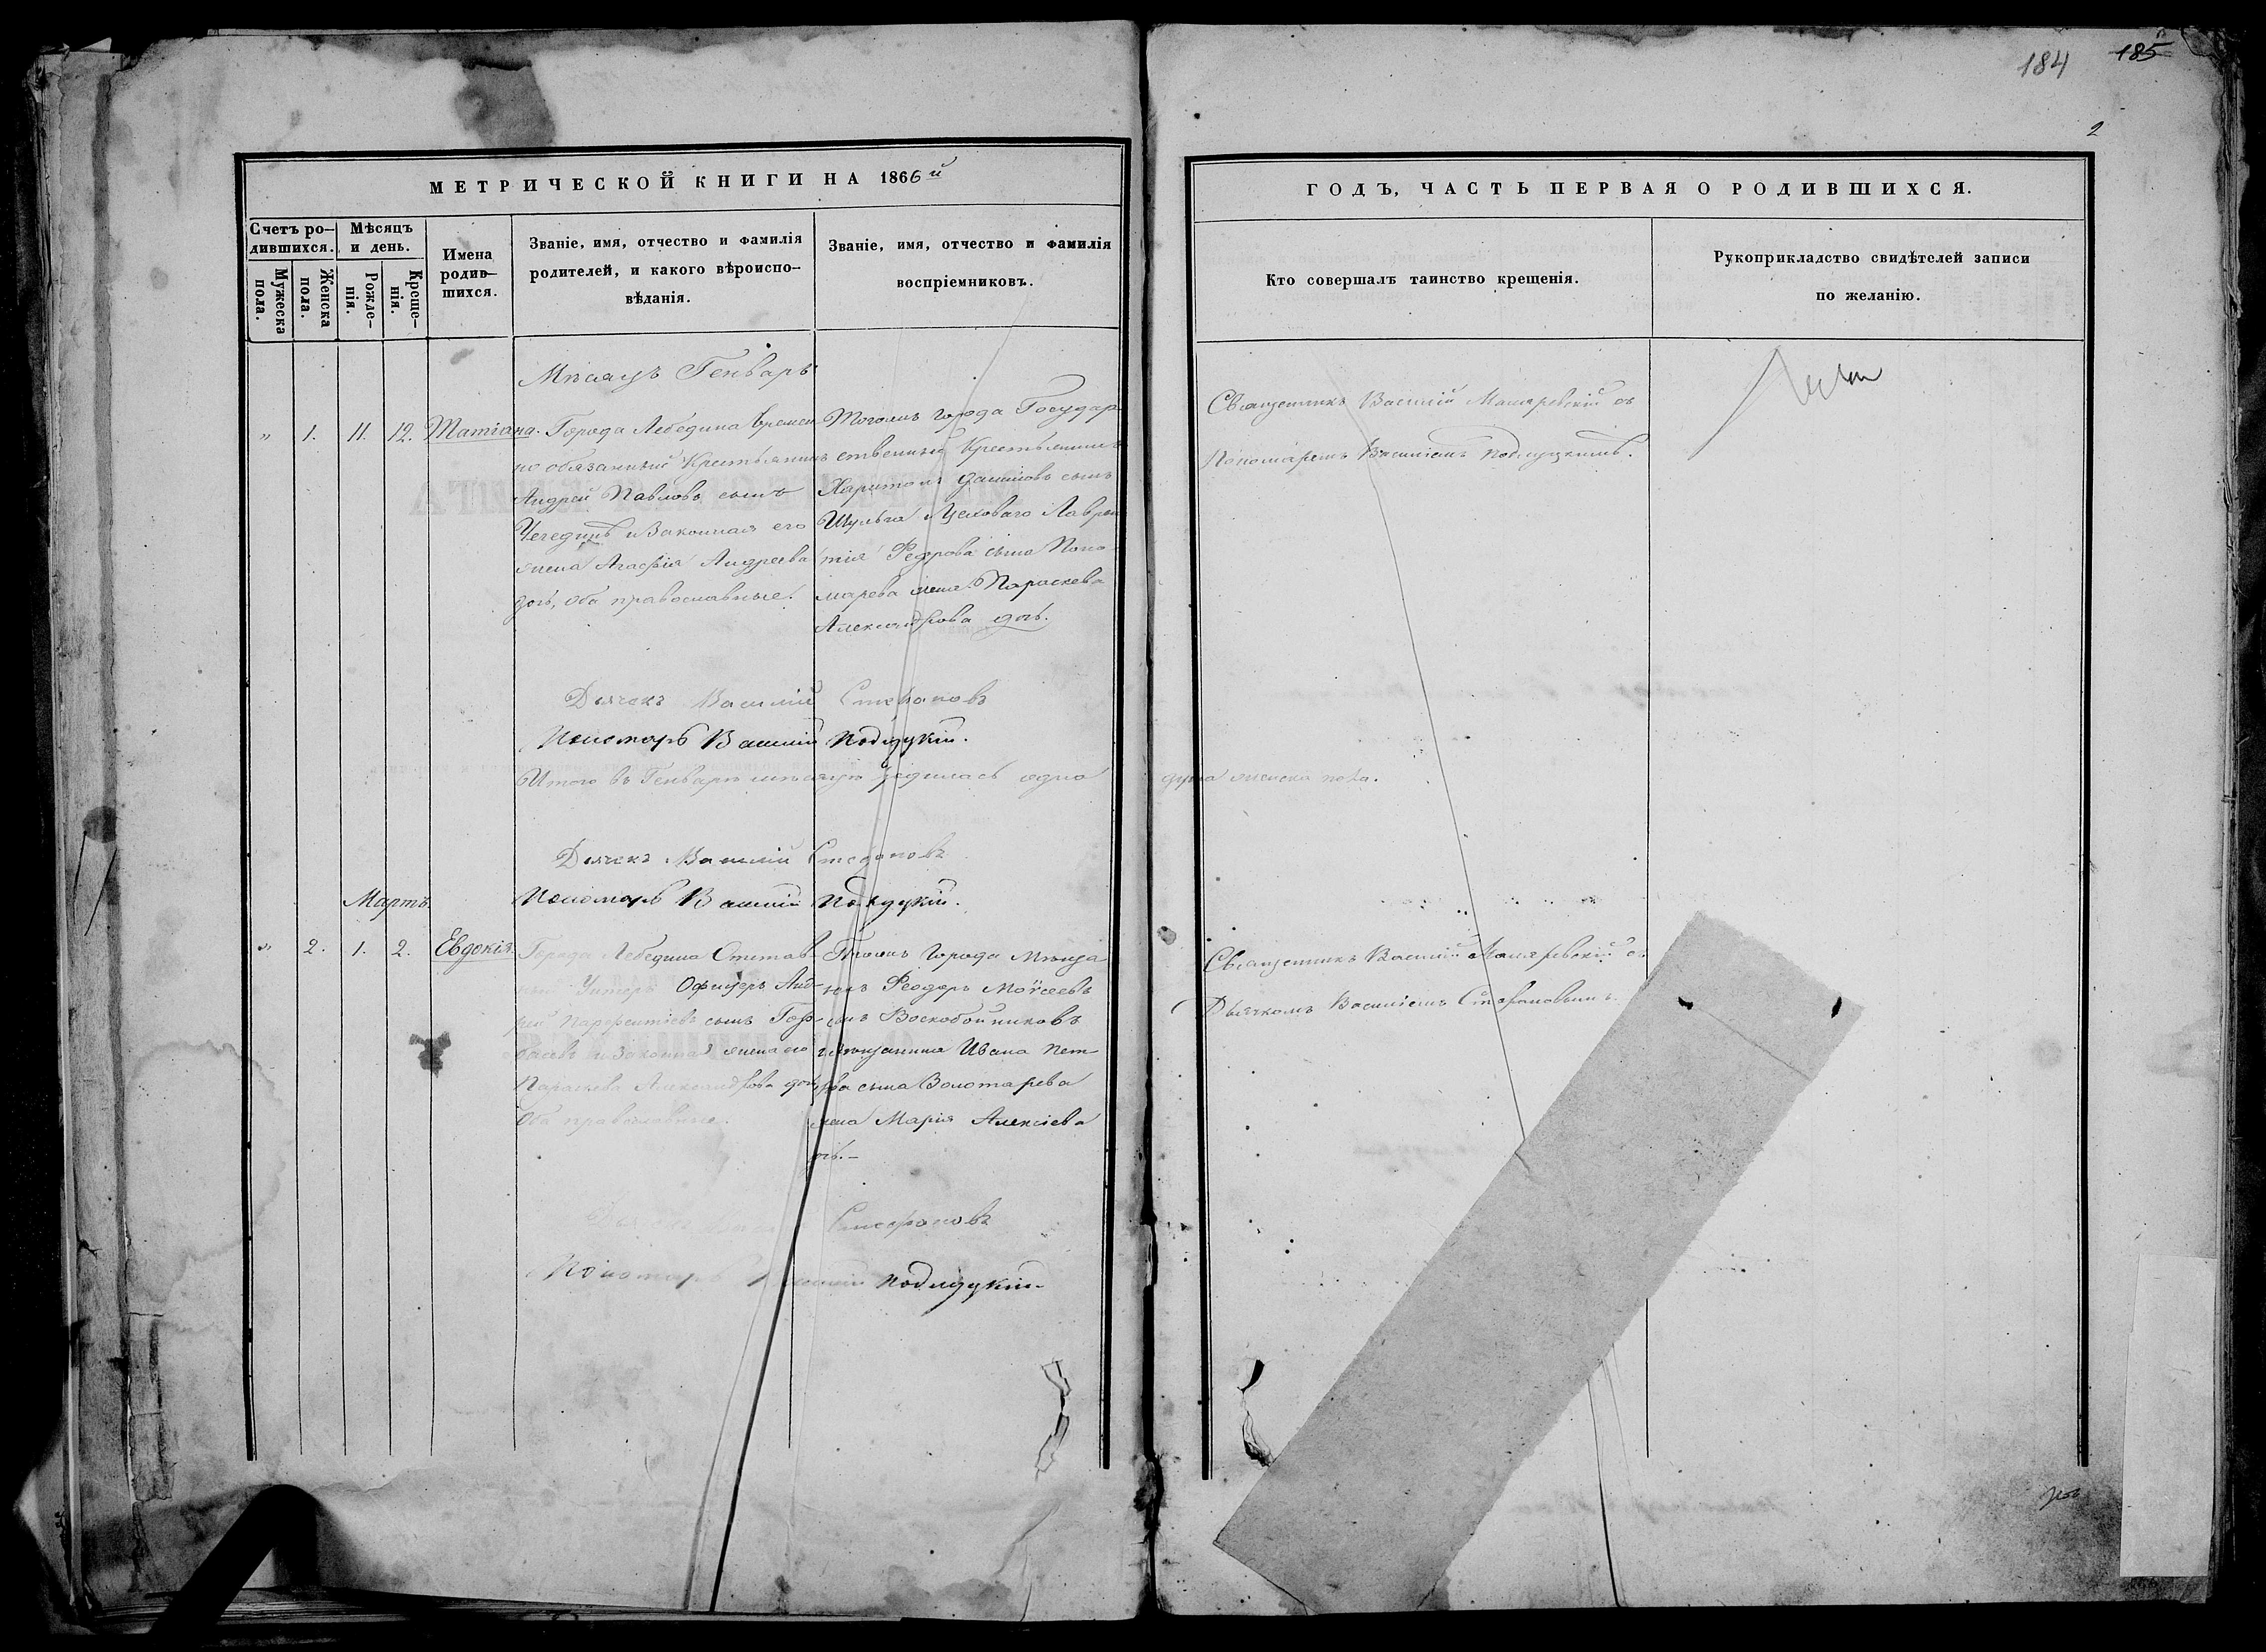 184 185
2
МЕТРИЧЕСКОЙ КНИГИ НА 1866й
Счетъ ро-
дившихся.
Мужеска
пола.
Женска
пола.
Мѣсяцъ
и день.
Рожде-
нія.
Креще-
нія.
Имена
родив-
шихся.
Званіе, имя, отчество и фамилія
родителей, и какого вѣроиспо-
вѣданія.
Званіе, имя, отчество и фамилія
воспріемниковъ.
ГОДЪ, ЧАСТЬ ПЕРВАЯ О РОДИВШИХСЯ.
Кто совершалъ таинство крещенія.
Рукоприкладство свидѣтелей записи
по желанію.
Мѣсяцъ Генварь
" 1. 11. 12. Татіана.
Города Лебедина времен
но обязанный Крестьянинъ
Андрей Павловъ сынъ
и Законная его
жена Агафія Андреева
дочь, оба православные.
Тогожъ города Государ
ственный Крестьянинъ
Харитонъ сынъ
Шульга Лаврен
тія сына Поно
марева жена Параскева
Александрова дочь.
Священникъ Василій съ
Пономаремъ Василіемъ Подлуцкимъ.
Дьячекъ Василій Стефановъ
Пономарь Василій Подлуцкій.
Итого въ Генварѣ мѣсяцѣ родилась одна душа женска пола.
Дьячекъ Василій Стефановъ
Пономарь Василій Подлуцкій.
Мартъ.
" 2. 1. 2. Евдокія.
Города Лебедина Отстав-
ный Унтеръ Офицеръ Анд-
рей Парфентіевъ сынъ Гор-
и Законная жена его
Параскева Александрова дочь
Оба православные.
Тогожъ города Мѣща
нинъ Феодоръ Моѵсеевъ
сынъ Воскобойниковъ
и мѣщанина Ивана Пет-
рова сына Золотарева
жена Марія Алексіева
дочь.-
Священникъ Василій съ
Дьячкомъ Василіемъ Стефановымъ.
Дьячекъ Стефановъ
Пономарь Василій Подлуцкій